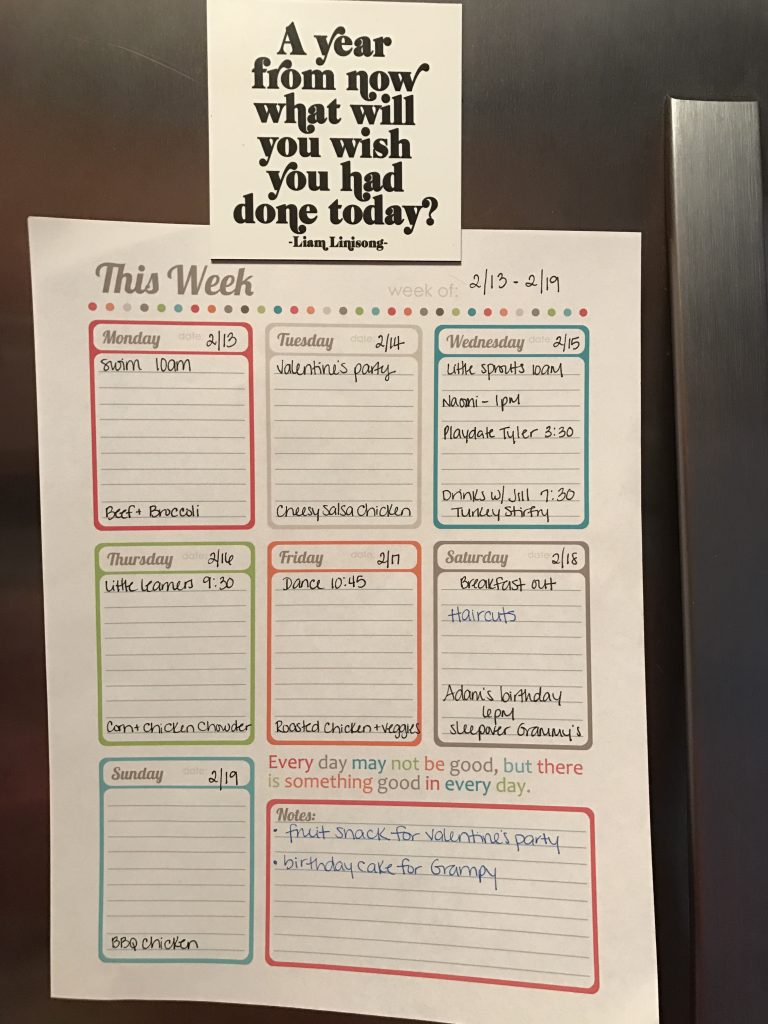 A year
from now
what will
you wish
you had
done today?
-Liam Linisong-
This Week
week of: 2/13 - 2/19
Monday date: 2/13
Swim 10am
Beef + Broccoli
Tuesday date: 2/14
Valentine's party
Cheesy Salsa Chicken
Wednesday date: 2/15
Little Sprouts 10am
Naomi - 1pm
Playdate Tyler 3:30
Drinks w/ Jill 7:30
Turkey Stirfry
Thursday date: 2/16
Little Learners 9:30
Corn + Chicken Chowder
Friday date: 2/17
Dance 10:45
Roasted Chicken + veggies
Saturday date: 2/18
Breakfast out
Haircuts
Adam's birthday
6pm
Sleepover Grammy's
Every day may not be good, but there
is something good in every day.
Sunday date: 2/19
BBQ Chicken
Notes:
• fruit snack for Valentine's party
• birthday cake for Grampy